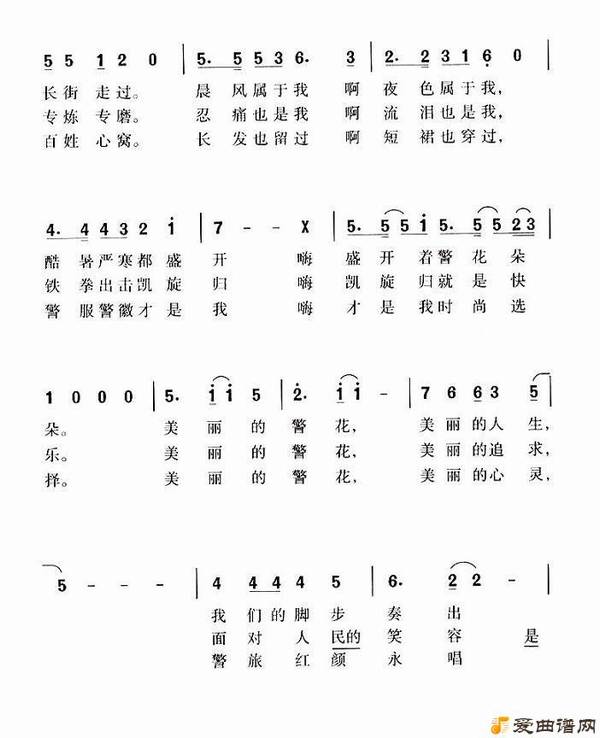 5 5 1 2 0 | 5. 5 5 3 6. 3 | 2. 2 3 1 6 0 |
长街走过。 晨风属于我 啊夜色属于我,
专炼专磨。 忍痛也是我 啊流泪也是我,
百姓心窝。 长发也留过 啊短裙也穿过,
4. 4 4 3 2 i | 7 - - X | 5. 5 5 i 5. 5 5 2 3 |
酷暑严寒都盛开 嗨盛开着警花朵
铁拳出击凯旋归 嗨凯旋归就是快
警服警徽才是我 嗨才是我时尚选
1 0 0 0 | 5. i i 5 | 2. i i - | 7 6 6 3 5 |
朵。 美丽的警花, 美丽的人生,
乐。 美丽的警花, 美丽的追求,
择。 美丽的警花, 美丽的心灵,
5 - - - | 4 4 4 4 5 | 6. 2 2 - |
我们的脚步奏出
面对人民的笑容是
警旅红颜永唱
爱曲谱网